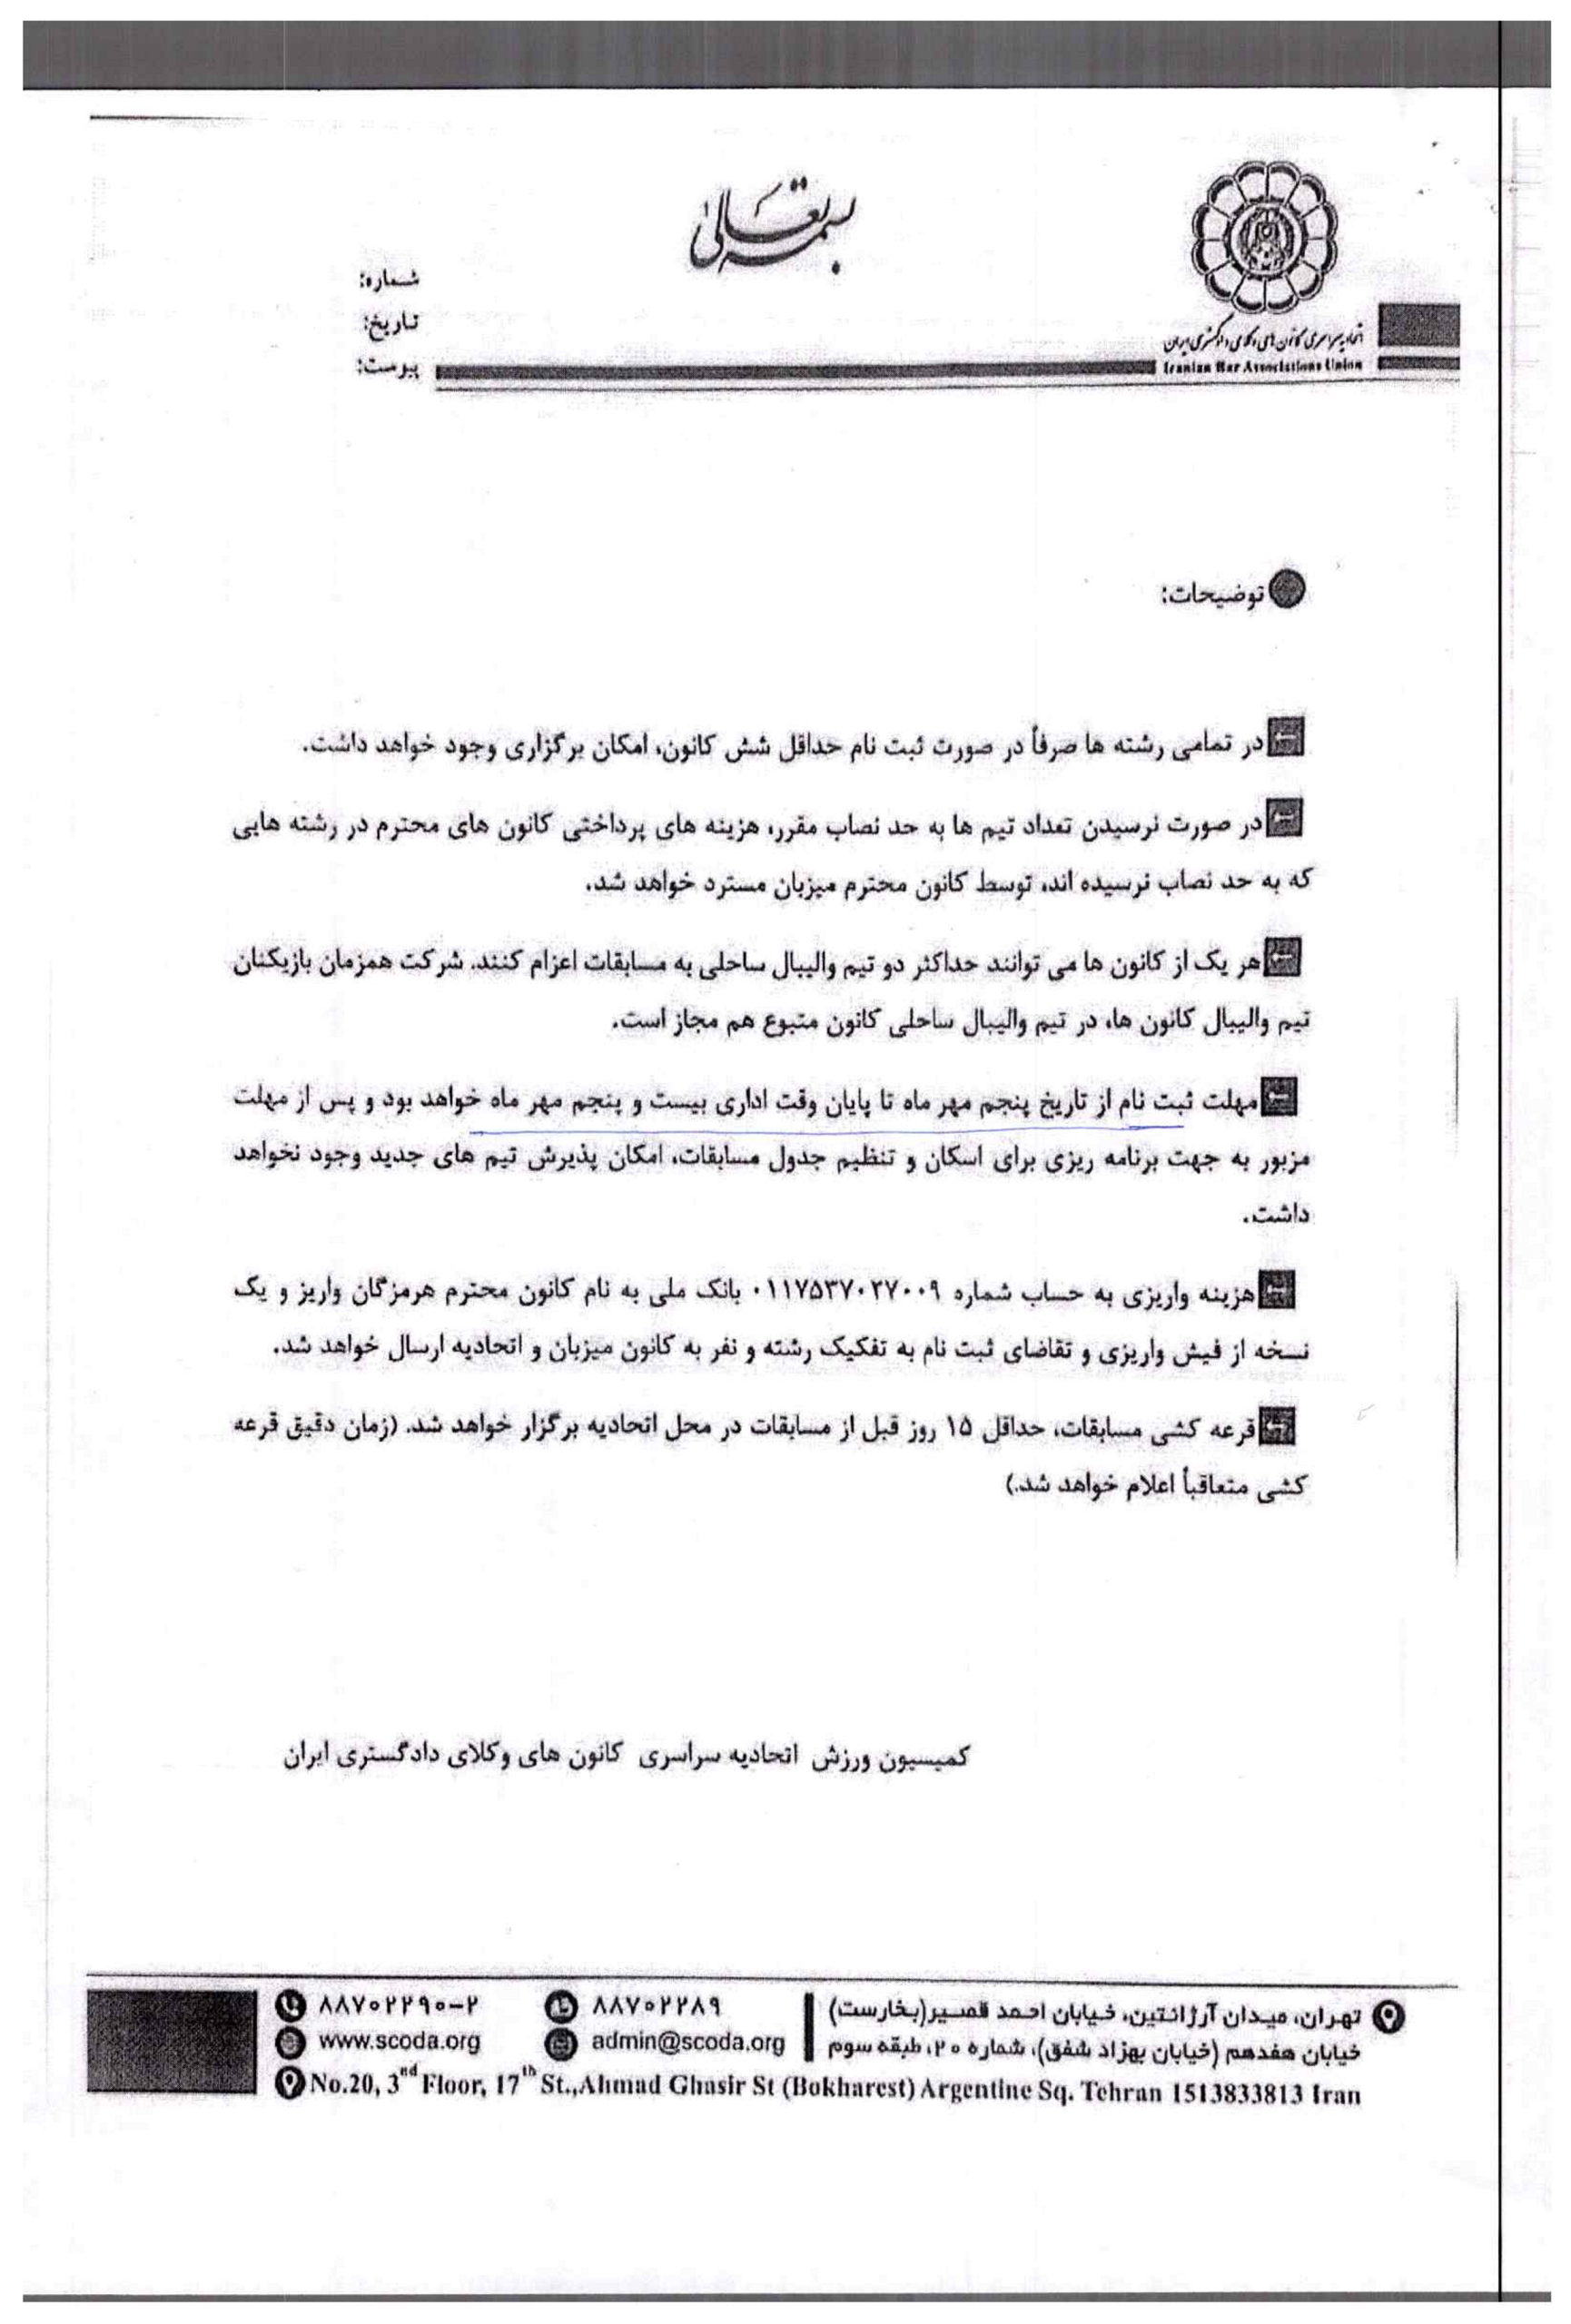 بسمه تعالی
شماره:
تاریخ:
پیوست:
اتحادیه سراسری کانون های وکلای دادگستری ایران
Iranian Bar Associations Union
توضیحات:
در تمامی رشته ها صرفاً در صورت ثبت نام حداقل شش کانون، امکان برگزاری وجود خواهد داشت.
در صورت نرسیدن تعداد تیم ها به حد نصاب مقرر، هزینه های پرداختی کانون های محترم در رشته هایی
که به حد نصاب نرسیده اند، توسط کانون محترم میزبان مسترد خواهد شد.
هر یک از کانون ها می توانند حداکثر دو تیم والیبال ساحلی به مسابقات اعزام کنند. شرکت همزمان بازیکنان
تیم والیبال کانون ها، در تیم والیبال ساحلی کانون متبوع هم مجاز است.
مهلت ثبت نام از تاریخ پنجم مهر ماه تا پایان وقت اداری بیست و پنجم مهر ماه خواهد بود و پس از مهلت
مزبور به جهت برنامه ریزی برای اسکان و تنظیم جدول مسابقات، امکان پذیرش تیم های جدید وجود نخواهد
داشت.
هزینه واریزی به حساب شماره ۰۱۱۷۵۳۷۰۲۷۰۰۹ بانک ملی به نام کانون محترم هرمزگان واریز و یک
نسخه از فیش واریزی و تقاضای ثبت نام به تفکیک رشته و نفر به کانون میزبان و اتحادیه ارسال خواهد شد.
قرعه کشی مسابقات، حداقل ۱۵ روز قبل از مسابقات در محل اتحادیه برگزار خواهد شد. (زمان دقیق قرعه
کشی متعاقباً اعلام خواهد شد.)
کمیسیون ورزش اتحادیه سراسری کانون های وکلای دادگستری ایران
تهران، میدان آرژانتین، خیابان احمد قصیر(بخارست)
خیابان هفدهم (خیابان بهزاد شفق)، شماره ۲۰، طبقه سوم
۸۸۷۰۲۲۸۹
admin@scoda.org
۸۸۷۰۲۲۹۰-۲
www.scoda.org
No.20, 3nd Floor, 17th St.,Ahmad Ghasir St (Bokharest) Argentine Sq. Tehran 1513833813 Iran